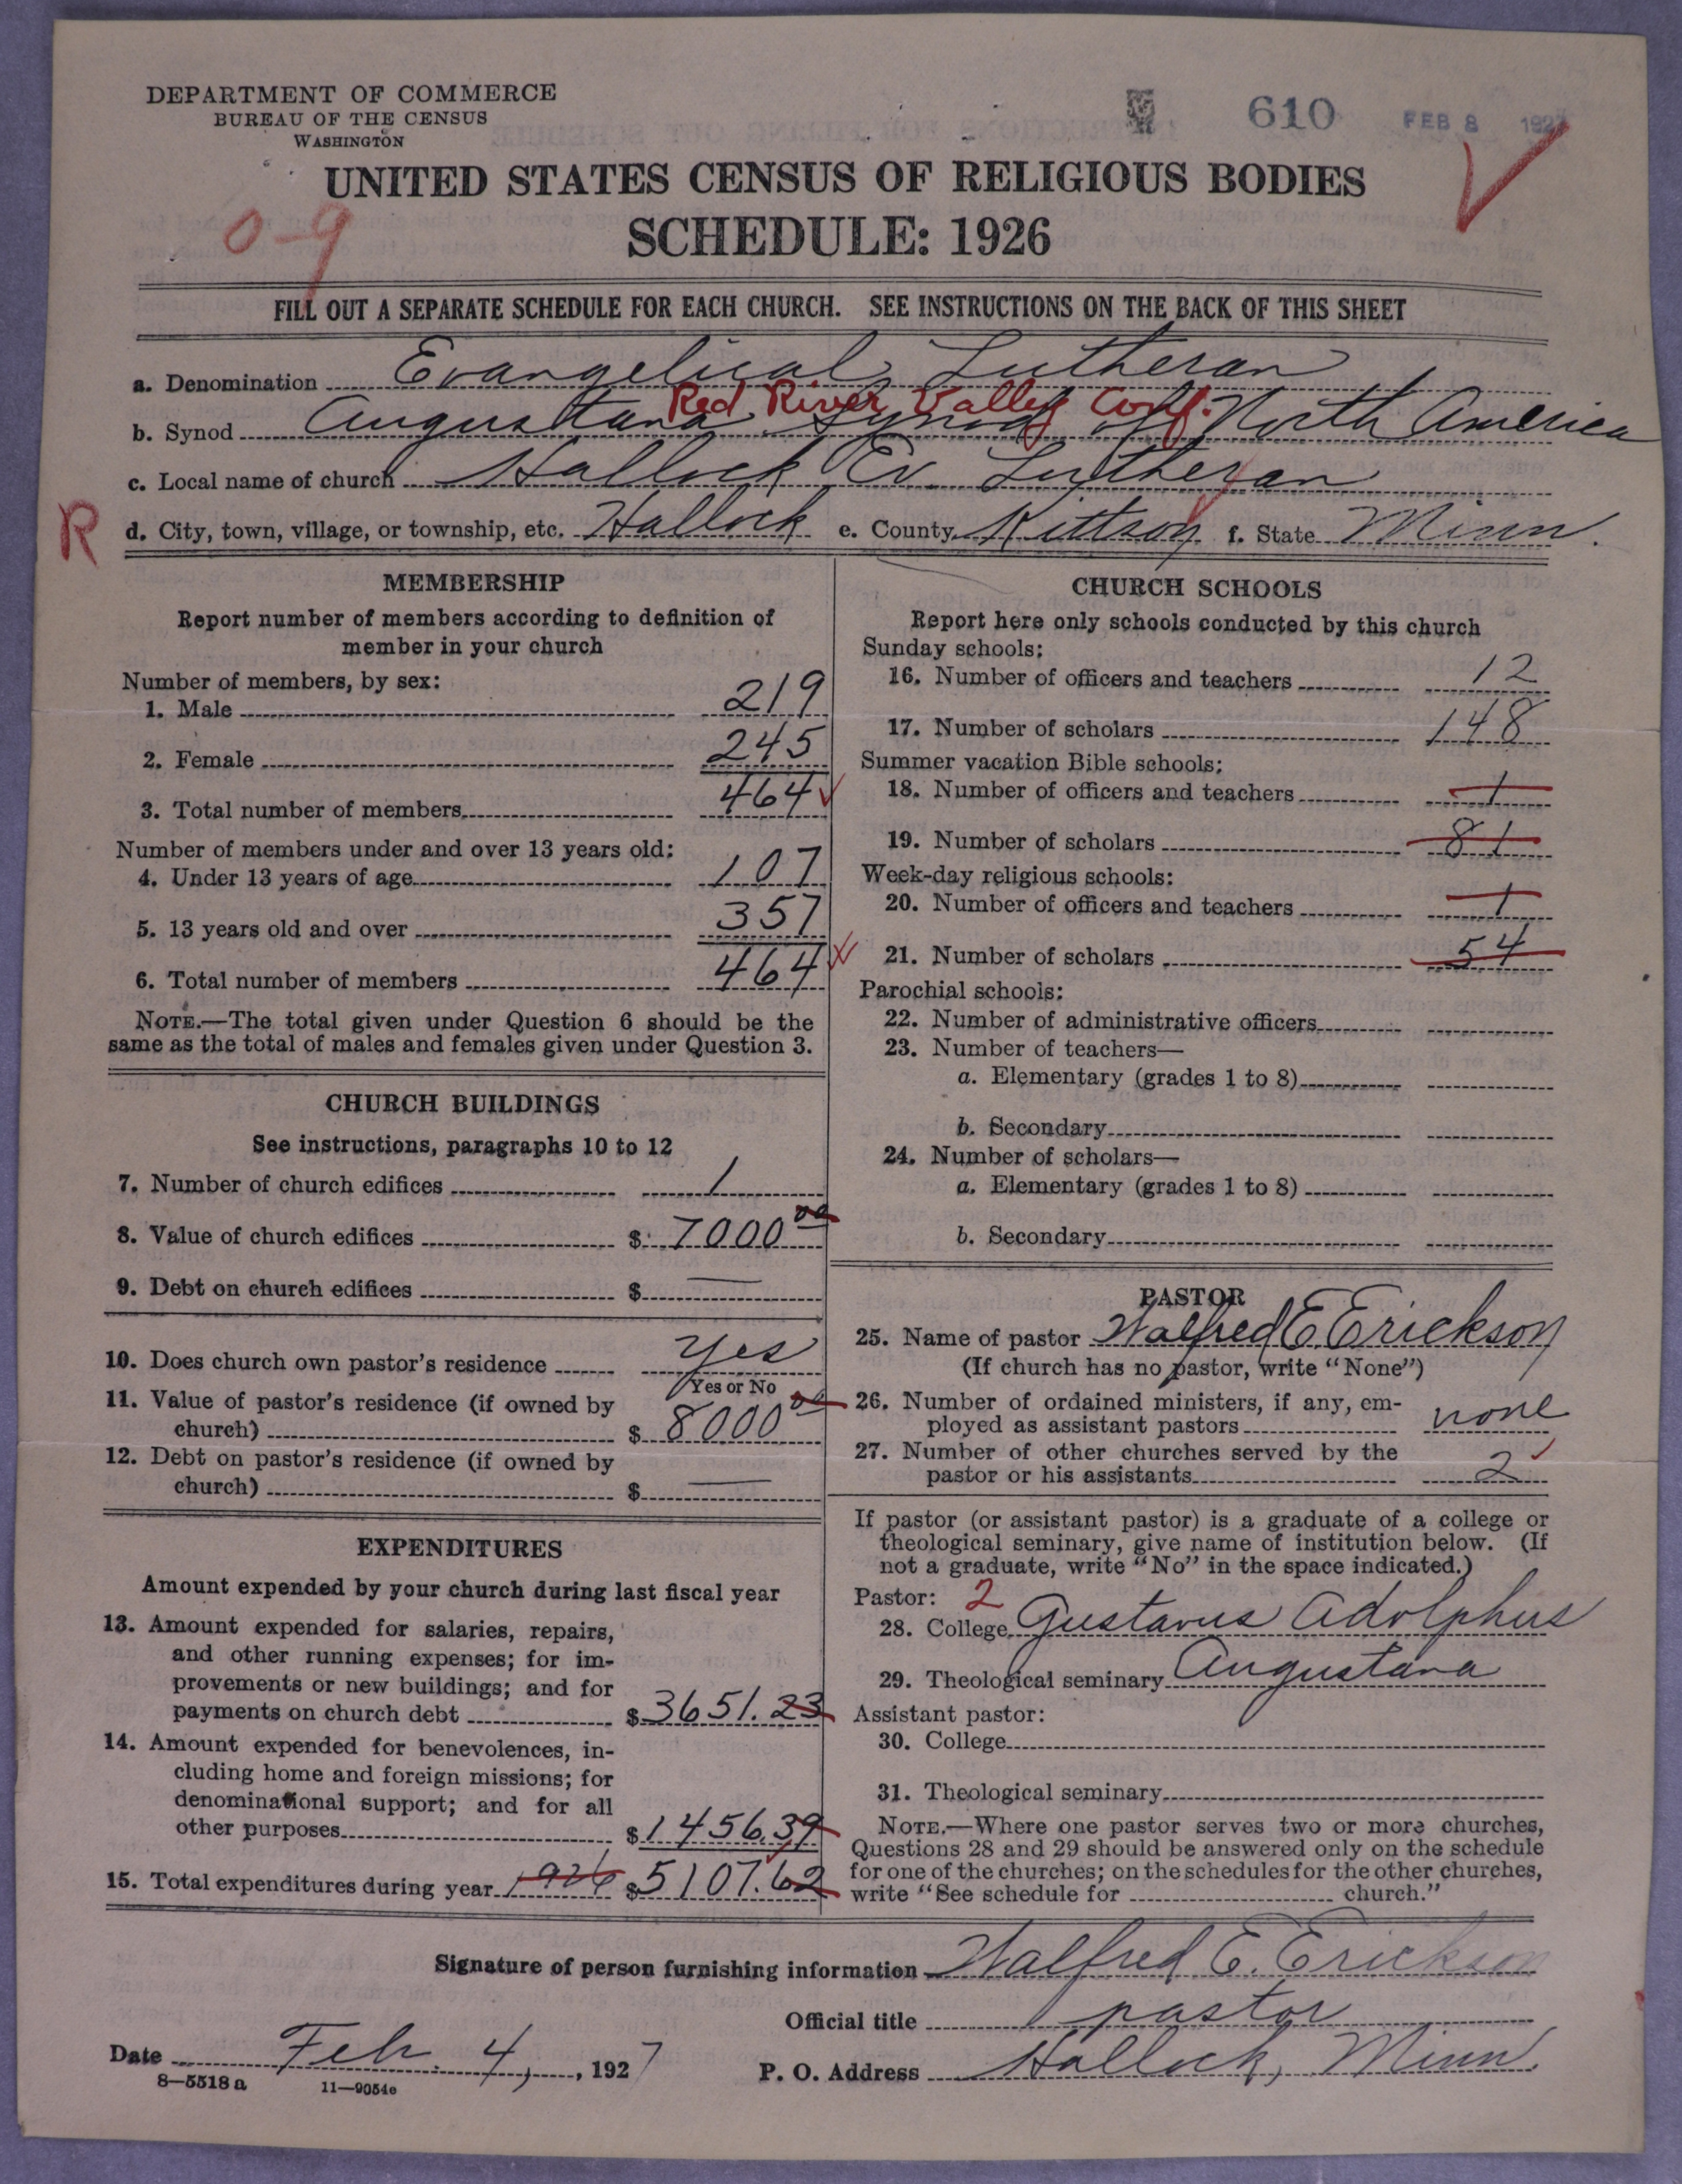 DEPARTMENT OF COMMERCE
BUREAU OF THE CENSUS
WASHINGTON
610 FEB 8 1927
UNITED STATES CENSUS OF RELIGIOUS BODIES
0-9
SCHEDULE: 1926
FILL OUT A SEPARATE SCHEDULE FOR EACH CHURCH. SEE INSTRUCTIONS ON THE BACK OF THIS SHEET
a. Denomination Evangelical Lutheran
Red River Valley Conf.
b. Synod Augustana Synod of North America
c. Local name of church Hallock Ev. Lutheran
R
d. City, town, village, or township, etc. Hallock e. County Kittson f. State Minn.
MEMBERSHIP
Report number of members according to definition of
member in your church
Number of members, by sex:
1. Male 219
2. Female 245
3. Total number of members 464
Number of members under and over 13 years old:
4. Under 13 years of age 107
5. 13 years old and over 357
6. Total number of members 464
NOTE.—The total given under Question 6 should be the
same as the total of males and females given under Question 3.
CHURCH BUILDINGS
See instructions, paragraphs 10 to 12
7. Number of church edifices 1
8. Value of church edifices $ 7000 00
9. Debt on church edifices $ —
10. Does church own pastor's residence Yes
Yes or No
11. Value of pastor's residence (if owned by
church) $ 8000 00
12. Debt on pastor's residence (if owned by
church) $ —
EXPENDITURES
Amount expended by your church during last fiscal year
13. Amount expended for salaries, repairs,
and other running expenses; for im-
provements or new buildings; and for
payments on church debt $ 3651.23
14. Amount expended for benevolences, in-
cluding home and foreign missions; for
denominational support; and for all
other purposes $ 1456.39
15. Total expenditures during year 1926 $ 5107.62
CHURCH SCHOOLS
Report here only schools conducted by this church
Sunday schools:
16. Number of officers and teachers 12
17. Number of scholars 148
Summer vacation Bible schools:
18. Number of officers and teachers 1
19. Number of scholars 81
Week-day religious schools:
20. Number of officers and teachers 1
21. Number of scholars 54
Parochial schools:
22. Number of administrative officers
23. Number of teachers—
a. Elementary (grades 1 to 8)
b. Secondary
24. Number of scholars—
a. Elementary (grades 1 to 8)
b. Secondary
PASTOR
25. Name of pastor Walfred E Erickson
(If church has no pastor, write "None")
26. Number of ordained ministers, if any, em-
ployed as assistant pastors none
27. Number of other churches served by the
pastor or his assistants 2
If pastor (or assistant pastor) is a graduate of a college or
theological seminary, give name of institution below. (If
not a graduate, write "No" in the space indicated.)
Pastor: 2
28. College Gustavus Adolphus
29. Theological seminary Augustana
Assistant pastor:
30. College
31. Theological seminary
NOTE.—Where one pastor serves two or more churches,
Questions 28 and 29 should be answered only on the schedule
for one of the churches; on the schedules for the other churches,
write "See schedule for church."
Signature of person furnishing information Walfred E. Erickson
Official title pastor
Date Feb. 4, 1927
P. O. Address Hallock, Minn.
8—5518 a 11—9054e